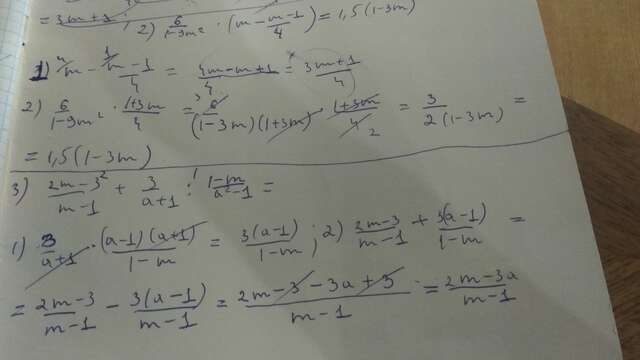 = 3m+1 2) 6/(1-9m²) · (m - (m-1)/4) = 1,5(1-3m)
1) ⁴m - ¹(m-1)/4 = (4m-m+1)/4 = (3m+1)/4
2) 6/(1-9m²) · (1+3m)/4 = ³6/((1-3m)(1+3m)) · (1+3m)/4₂ = 3/(2(1-3m)) =
= 1,5(1-3m)
3) (2m-3)/(m-1) ²+ 3/(a+1) ¹: (1-m)/(a²-1) =
1) 3/(a+1) · ((a-1)(a+1))/(1-m) = 3(a-1)/(1-m); 2) (2m-3)/(m-1) + 3(a-1)/(1-m) =
= (2m-3)/(m-1) - 3(a-1)/(m-1) = (2m-3-3a+3)/(m-1) = (2m-3a)/(m-1)